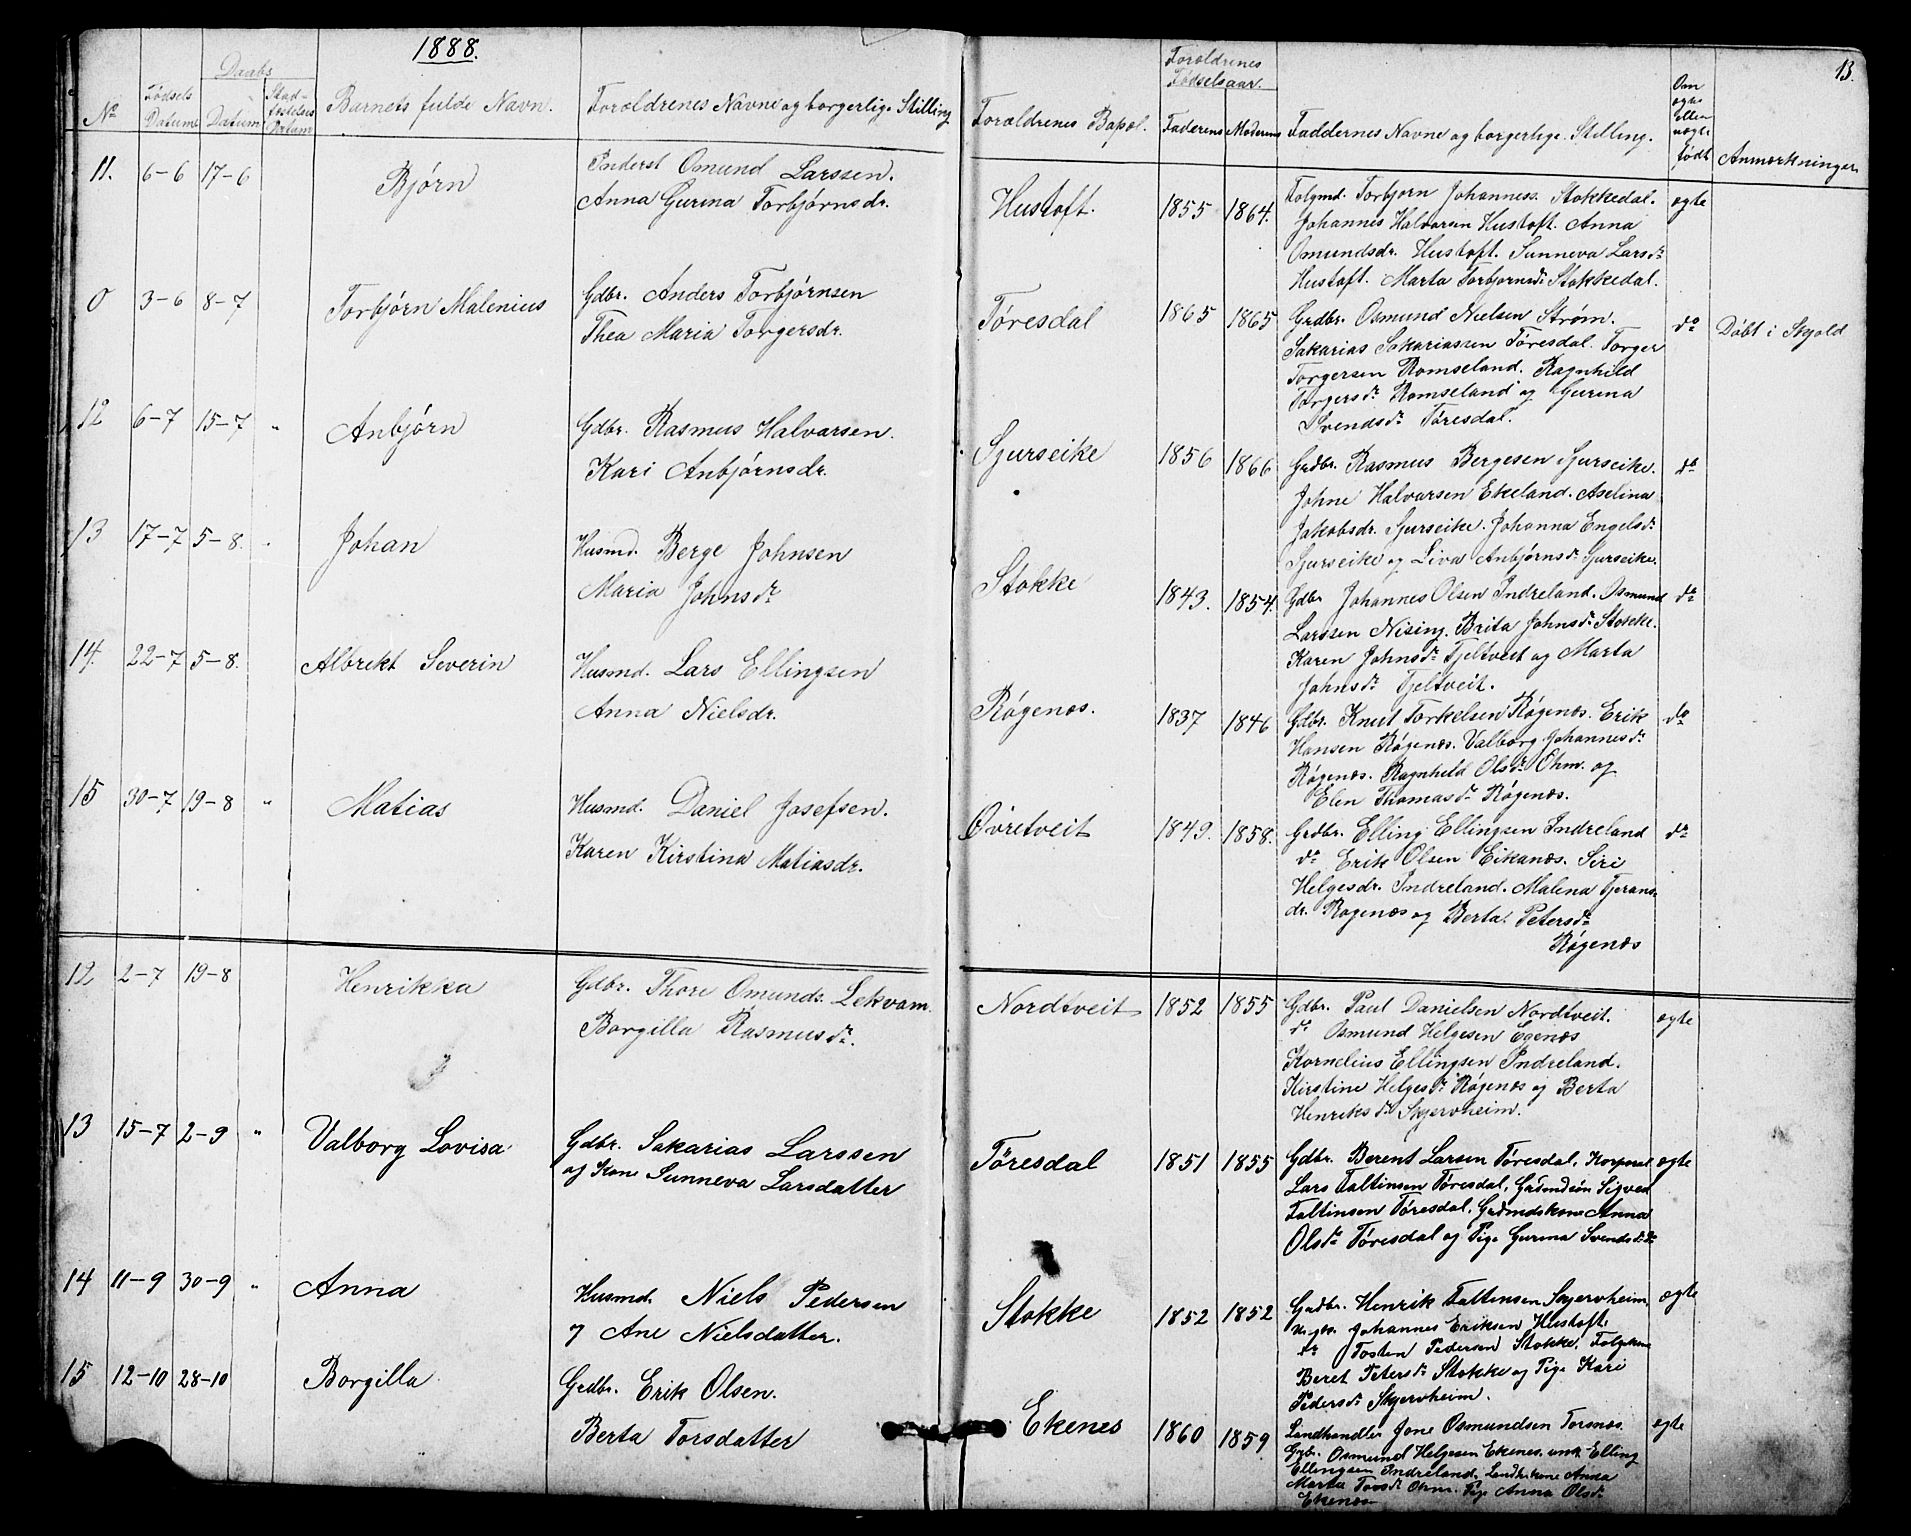 1888.
13.
Daabs
Forældrenes
Fødselsaar.
No
Fødsels Datum
Datum
Stadfæstelses Datum
Barnets fulde Navn.
Forældrenes Navne og borgerlige Stilling
Forældrenes Bopæl.
Faderens
Moderens
Faddernes Navne og borgerlige Stilling.
Om ægte eller uægte født
Anmærkninger
11. 6-6 17-6 Bjørn
Inderst Omund Larssen.
Anna Gurina Torbjørnsdr.
Hustoft. 1855 1864.
Folgmd. Torbjørn Johanness. Stokkedal.
Johannes Halvorsen Hustoft. Anna
Omundsdr. Hustoft. Sunneva Larsdr
Hustoft. Marta Torbjornsdr Stokkedal.
ægte
0 3-6 8-7 Torbjørn Malenius
Gdbr. Anders Torbjørnsen
Thea Maria Torgersdr.
Tøresdal 1865 1865
Grdbr. Osmund Nielsen Strøm.
Sakarias Sakariassen Tøresdal. Torger
Torgersen Romseland. Ragnhild
Torgersdr Romseland og Gurina
Svendsdr Tøresdal.
do Døbt i Skjold
12 6-7 15-7 " Anbjørn
Gdbr. Rasmus Halvarsen.
Kari Anbjørnsdr.
Sjurseike 1856 1866
Grdbr. Rasmus Bergesen Sjurseike.
Johne Halvarsen Ekeland. Aselina
Jakobsdr. Sjurseike. Johanna Engelsdr
Sjurseike og Liva Anbjørnsdr Sjurseike.
do
13 17-7 5-8. " Johan
Husmd. Berge Johnsen
Maria Johnsdr
Stokke 1843. 1854.
Gdbr Johannes Olsen Indreland. Osmund
Larssen Nising. Brita Johnsdr Stokke.
Karen Johnsdr Tjeltveit og Marta
Johnsdr Tjeltveit.
do
14. 22-7 5-8. Albrekt Severin
Husmd. Lars Ellingsen
Anna Nielsdr.
Røgenæs. 1837 1846
Gdbr. Knut Torkelsen Røgenæs. Erik
Hansen Røgenæs. Valborg Johannesdr
Røgenæs. Ragnhild Olsdr Ohm. og
Elen Thomasdr Røgenæs.
do
15 30-7 19-8 " Matias
Husmd. Daniel Josefsen.
Karen Kirstina Matiasdr.
Øvretveit 1849. 1858.
Grdbr. Elling Ellingsen Indreland
do Erik Olsen Eikanæs. Siri
Helgesdr. Indreland. Malena Tjerans-
dr. Røgenæs og Berta Petersdr
Røgenæs
do
12 2-7 19-8 Henrikka
Gdbr. Thore Omunds. Lekvam.
Borgilla Rasmusdr.
Nordtveit 1852 1855
Gdbr. Paul Danielsen Nordtveit.
do Osmund Helgesen Egenæs
Kornelius Ellingsen Indreland.
Kirstine Helgesdr Røgenæs og Berta
Henriksdr Skjervheim.
ægte
13 15-7 2-9 " Valborg Lovisa
Gdbr. Sakarias Larssen
og Kone Sunneva Larsdatter
Tøresdal 1851 1855
Gdbr. Berent Larsen Tøresdal, Korporal
Lars Taltinsen Tøresdal, Gårdmdsøn Sigved
Taltinsen Tøresdal, Gårdmdskone Anna
Olsdr Tøresdal og Pige Gurina Svendsdr do
ægte
14 11-9 30-9 " Anna
Husmd. Niels Pedersen
og Ane Nielsdatter.
Stokke 1852 1852
Grdbr. Henrik Taltinsen Skjervheim,
Johannes Eriksen Hustoft.
do Tosten Pedersen Stokke, Folgekone
Beret Petersdr Stokke og Pige Kari
Pedersdr Skjervheim.
ægte
15 12-10 28-10 Borgilla
Grdbr. Erik Olsen.
Berta Torsdatter
Ekenes 1860 1859
Landhandler Jone Osmundsen Torsnæs
Grbr. Osmund Helgesen Ekenes, unk. Elling
Ellingsen Indreland, Landh. kone Anna
Marta Torsdr Ohm. Pige Anna Olsdr
Ekenæs
ægte